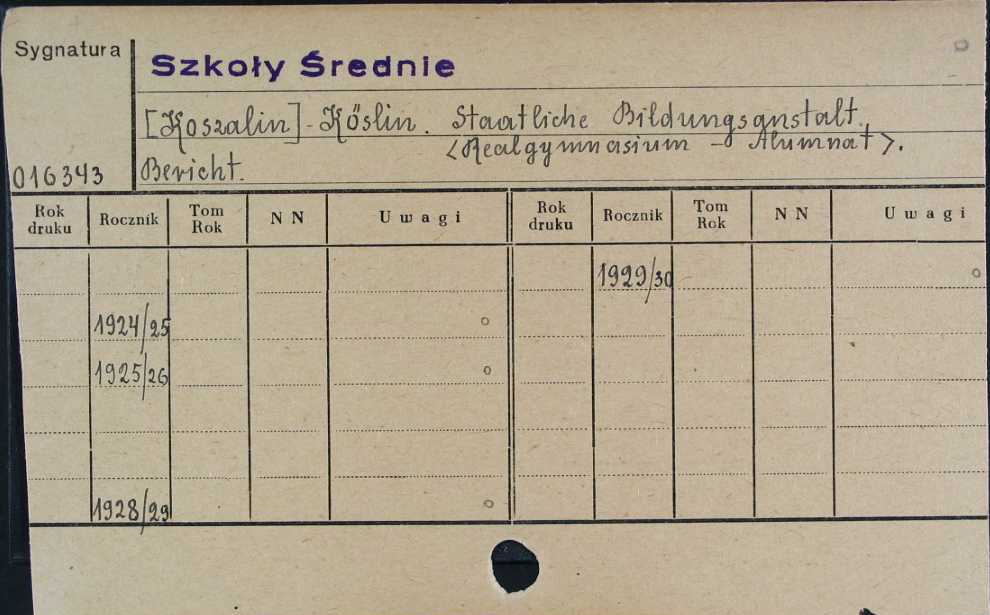 Sygnatura
Szkoły Średnie
[Koszalin] - Köslin. Staatliche Bildungsanstalt
<Realgymnasium - Alumnat>.
016343 Bericht.
Rok druku Rocznik Tom Rok NN Uwagi Rok druku Rocznik Tom Rok NN Uwagi
1929/30 o
1924/25 o
1925/26 o
1928/29 o